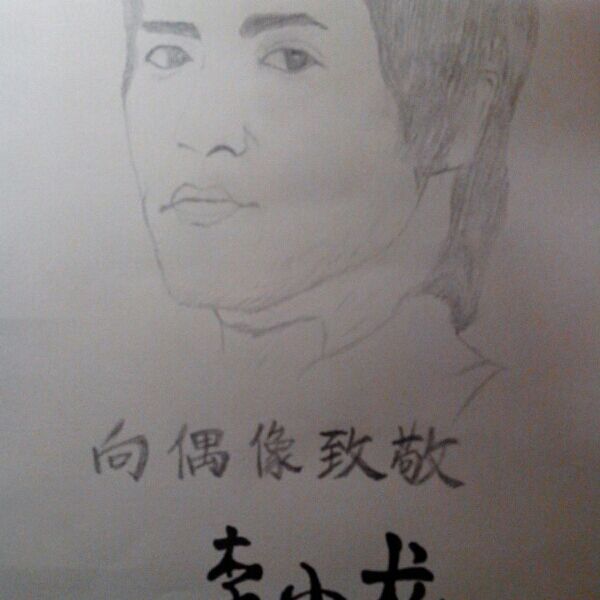 向偶像致敬
李小龙